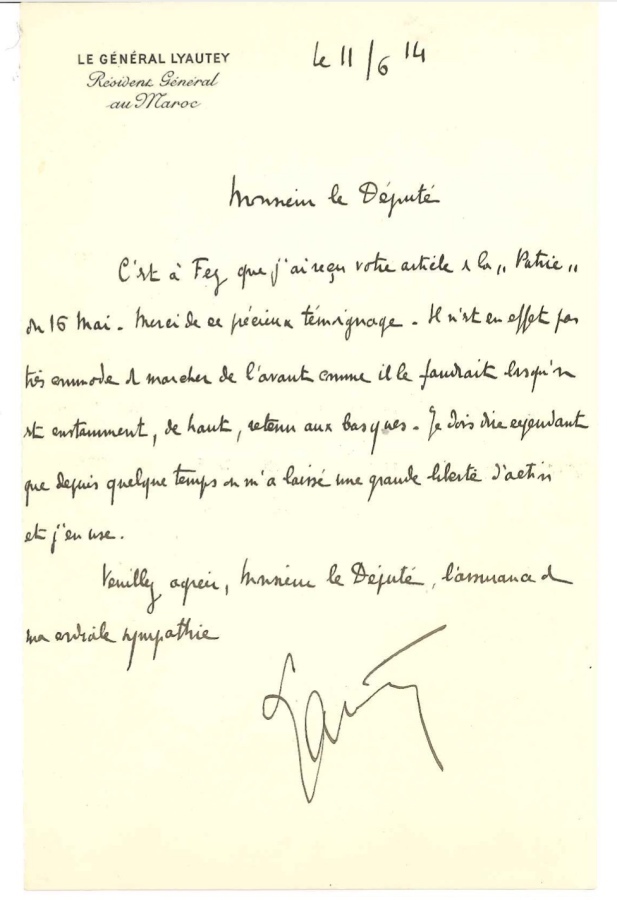 LE GÉNÉRAL LYAUTEY
Résident Général
au Maroc
le 11/6 14
Monsieur le Député
C'est à Fez que j'ai reçu votre article de la „ Patrie „
du 16 Mai. Merci de ce précieux témoignage. Il n'est en effet pas
très commode de marcher de l'avant comme il le faudrait lorsqu'on
est constamment, de haut, retenu aux basques. Je dois dire cependant
que depuis quelque temps on m'a laissé une grande liberté d'action
et j'en use.
Veuillez agréer, Monsieur le Député, l'assurance de
ma cordiale sympathie
Lyautey